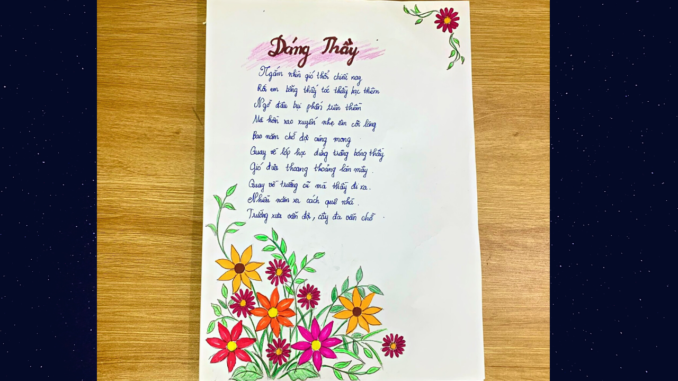 Dáng Thầy
Ngắm nhìn gió thổi chiều nay
Rồi em bỗng thấy tóc thầy bạc thêm
Ngỡ đâu bụi phấn trên thềm
Mà hồn xao xuyến nhẹ êm cõi lòng
Bao năm chờ đợi cùng mong
Quay về lớp học đứng trông bóng thầy
Gió đưa thoang thoảng hàn mây
Quay về trường cũ mà thầy đi xa.
Nhiều năm xa cách quê nhà
Trường xưa vẫn đợi, cây đa vẫn chờ